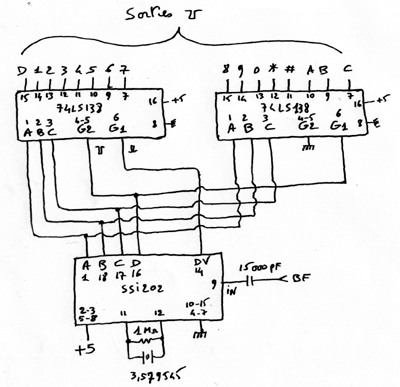 Sorties
D 1 2 3 4 5 6 7
8 9 0 * # A B C
15 14 13 12 11 10 9 7
15 14 13 12 11 10 9 7
74LS138
16 +5
74LS138
16 +5
1 2 3 4-5 6 8
1 2 3 4-5 6 8
A B C G2 G1
A B C G2 G1
A B C D DV
1 18 17 16 14
SSI202
9
iN
15000pF
BF
2-3
5-8
11 12
10-15
4-7
+5
1MΩ
3,579545